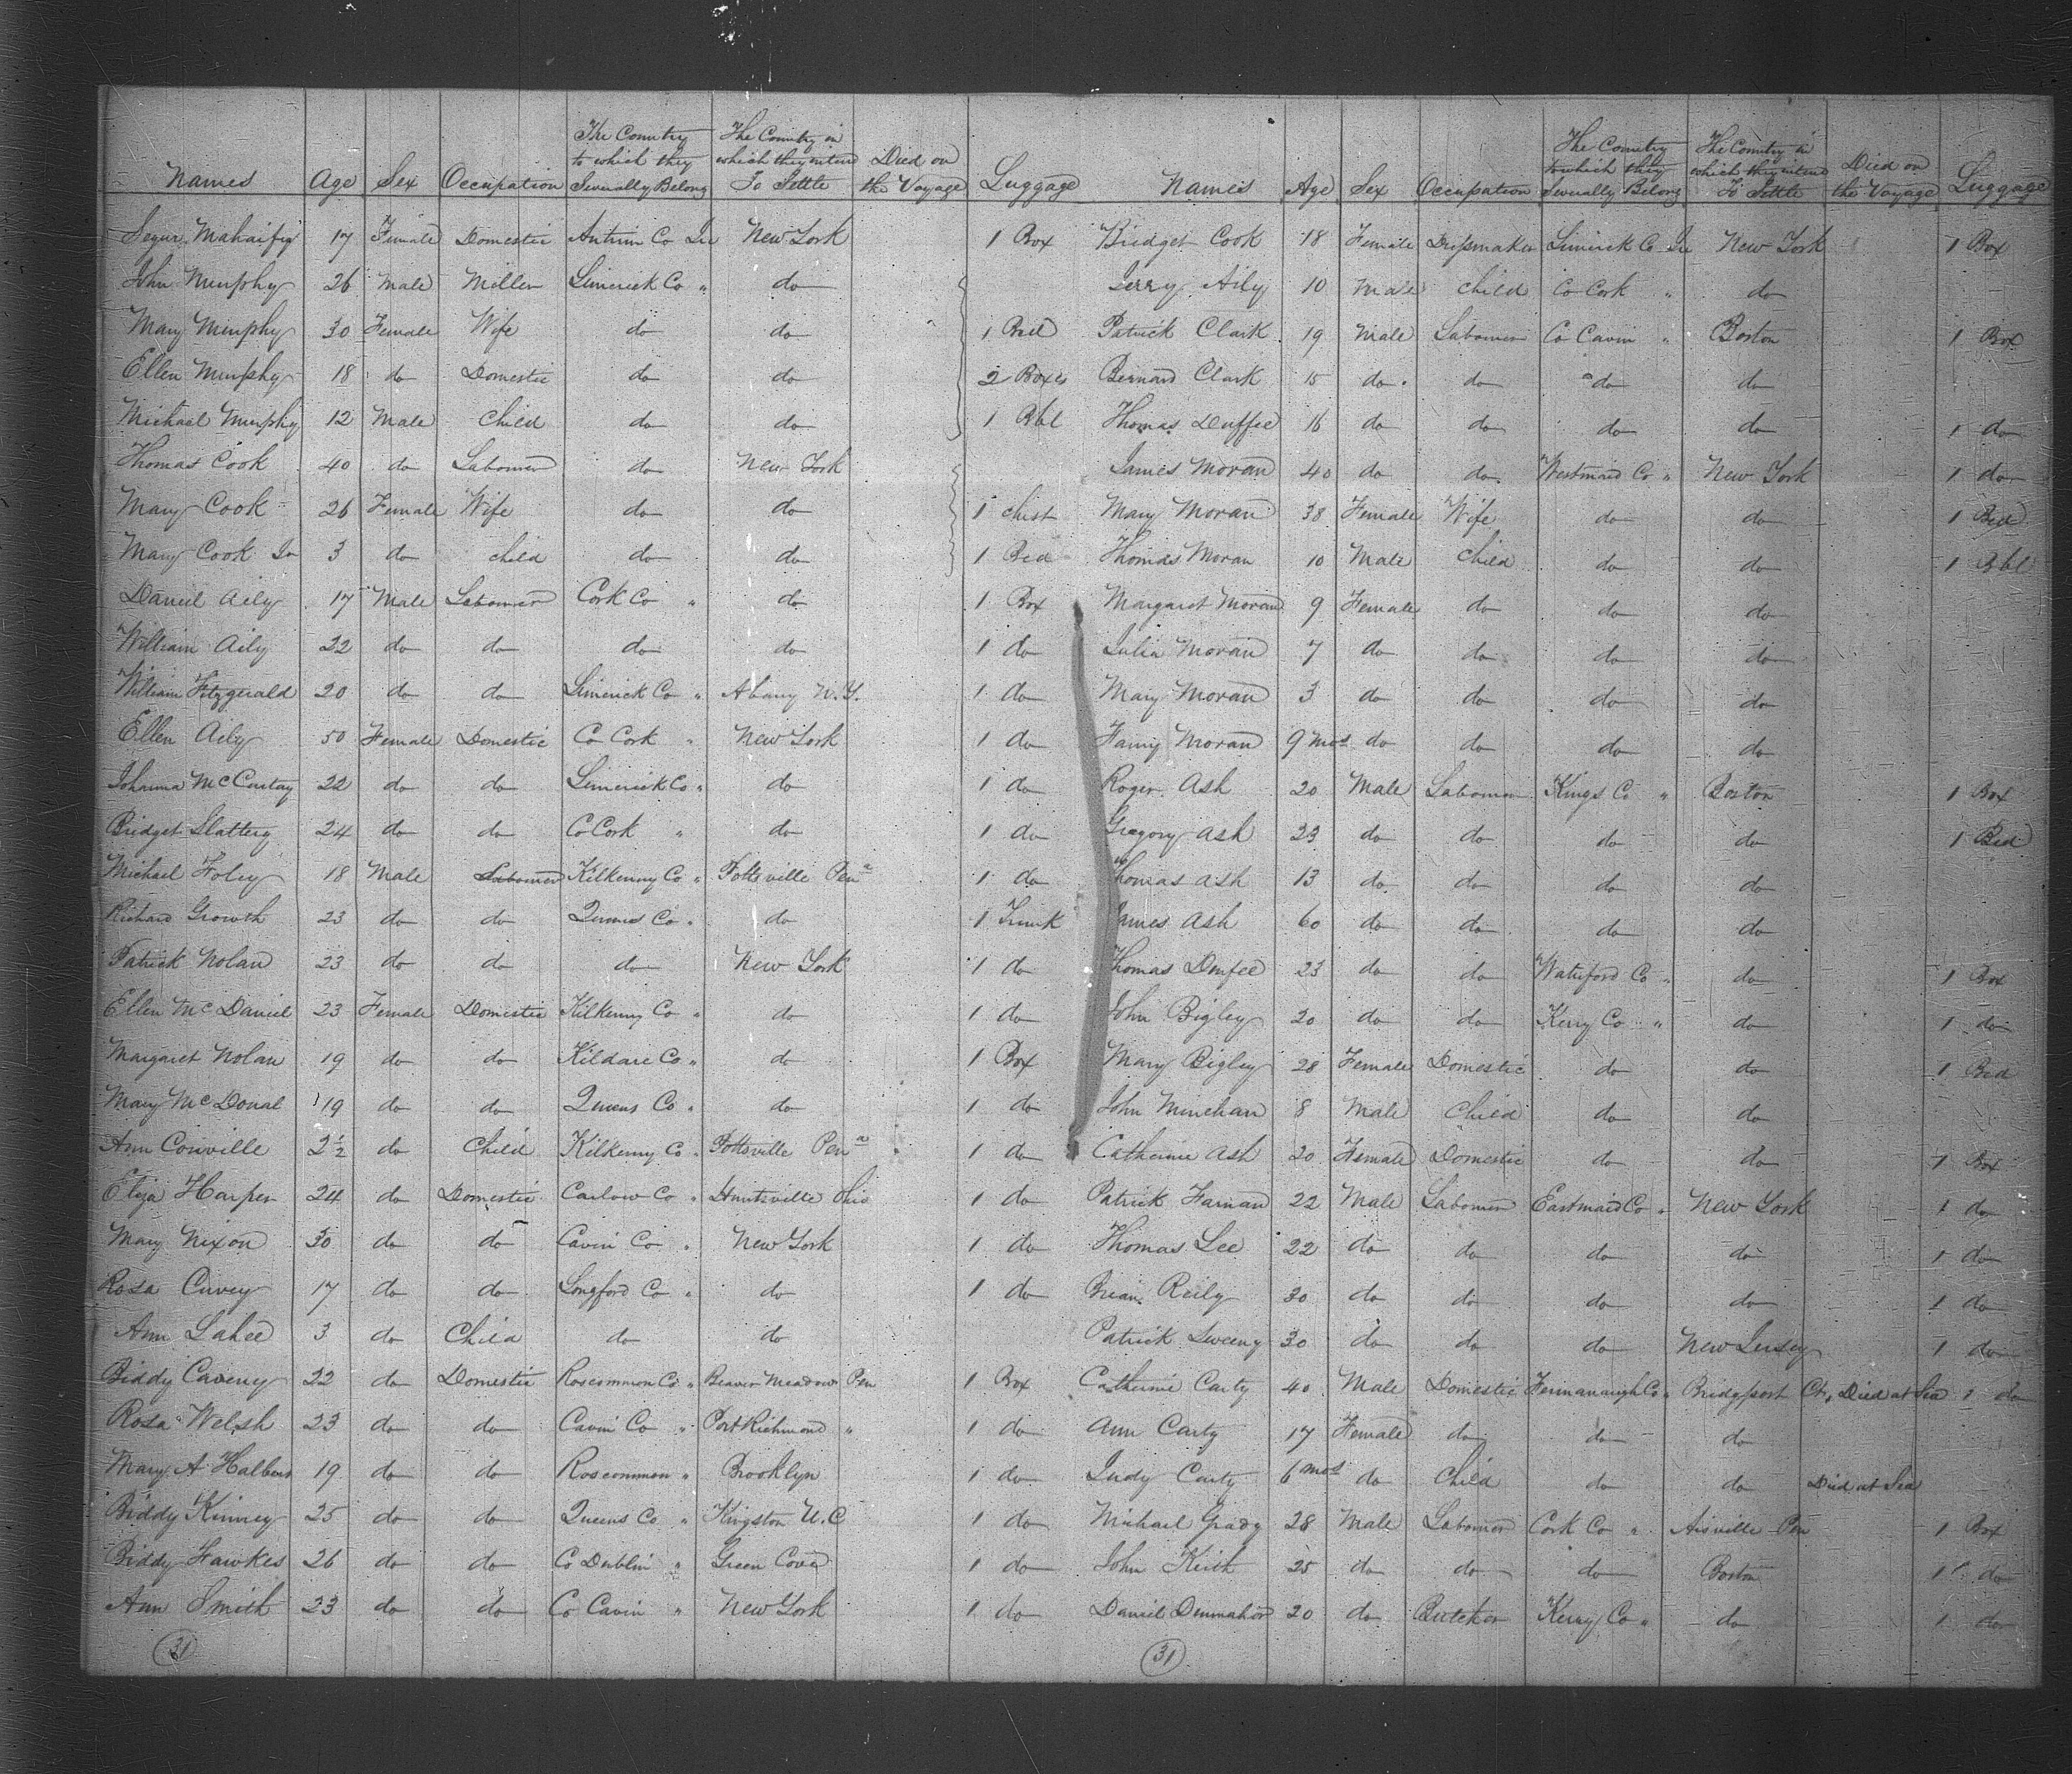 Names Age Sex Occupation The Country to which they Severally Belong The Country in which they intend To Settle Died on the Voyage Luggage
Mahaffy 17 Female Domestic Antrim Co Ire New York 1 Box
John Murphy 26 Male Miller Limerick Co " do
Mary Murphy 30 Female Wife do do 1 Bed
Ellen Murphy 18 do Domestic do do 2 Boxes
Michael Murphy 12 Male Child do do 1 Bbl
Thomas Cook 40 do Labourer do New York
Mary Cook 26 Female Wife do do 1 Chest
Mary Cook Jr 3 do child do do 1 Bed
Daniel Aily 17 Male Labourer Cork Co " do 1 Box
William Aily 22 do do do do 1 do
William Fitzgerald 20 do do Limerick Co " Abany N.Y. 1 do
Ellen Aily 50 Female Domestic Co Cork " New York 1 do
Johanna McCartay 22 do do Limerick Co " do 1 do
Bridget Slattery 24 do do Co Cork " do 1 do
Michael Foley 18 Male Labourer Kilkenny Co " Pottsville Pena 1 do
Richard Growth 23 do do Queens Co " do 1 Trunk
Patrick Nolan 23 do do do New York 1 do
Ellen McDaniel 23 Female Domestic Kilkenny Co " do 1 do
Margaret Nolan 19 do do Kildare Co " do 1 Box
Mary McDonal 19 do do Queens Co " do 1 do
Ann Conville 2½ do Child Kilkenny Co " Pottsville Pena 1 do
Eliza Harper 24 do Domestic Carlow Co " Huntsville Ohio 1 do
Mary Nixon 30 do do Cavin Co " New York 1 do
Rosa Curvey 17 do do Longford Co " do 1 do
Ann Lahee 3 do Child do do
Biddy Caveny 22 do Domestic Roscommon Co " Beaver Meadow Pen 1 Box
Rosa Welsh 23 do do Cavin Co " Port Richmond " 1 do
Mary A Halbert 19 do do Roscommon " Brooklyn 1 do
Biddy Kinney 25 do do Queens Co " Kingston U.C 1 do
Biddy Fawkes 26 do do Co Dublin " Green Cove 1 do
Ann Smith 23 do do Co Cavin " New York 1 do
31
Names Age Sex Occupation The Country to which they Severally Belong The Country in which they intend To Settle Died on the Voyage Luggage
Bridget Cook 18 Female Dressmaker Limerick Co Ire New York 1 Box
Jerry Aily 10 Male child Co Cork " do
Patrick Clark 19 Male Labourer Co Cavin " Boston 1 Box
Bernard Clark 15 do do do do
Thomas Duffee 16 do do do do 1 do
James Moran 40 do do Westmaid Co " New York 1 do
Mary Moran 38 Female Wife do do 1 Bed
Thomas Moran 10 Male Child do do 1 Bbl
Margaret Moran 9 Female do do do
Julia Moran 7 do do do do
Mary Moran 3 do do do do
Fanny Moran 9 mos do do do do
Roger Ash 20 Male Labourer Kings Co " Boston 1 Box
Gregory Ash 23 do do do do 1 Bed
Thomas Ash 13 do do do do
James Ash 60 do do do do
Thomas Dunfee 23 do do Waterford Co " do 1 Box
John Bigley 20 do do Kerry Co " do 1 do
Mary Bigley 28 Female Domestic do do 1 Bed
John Minehan 8 Male Child do do
Catherine Ash 20 Female Domestic do do 1 Box
Patrick Farnan 22 Male Labourer Eastmaid Co " New York 1 do
Thomas Lee 22 do do do do 1 do
Brian Reily 30 do do do do 1 do
Patrick Sweeny 30 do do do New Jersey 1 do
Catherine Carty 40 Male Domestic Fermanaugh Co " Bridgeport Ct, Died at Sea 1 do
Ann Carty 17 Female do do do
Judy Carty 6 mos do Child do do Died at Sea
Michael Grady 28 Male Labourer Cork Co " Pen 1 Box
John Keith 25 do do do Boston 1 do
Daniel 20 do Butcher Kerry Co " do 1 do
31